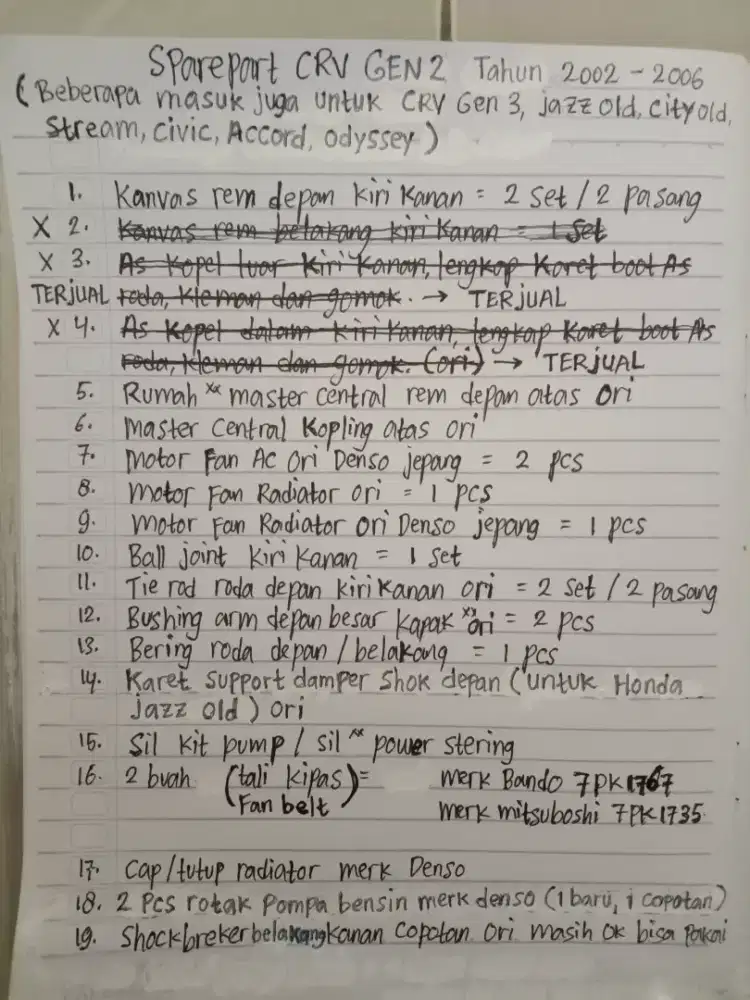 Sparepart CRV GEN 2 Tahun 2002 - 2006
(Beberapa masuk juga untuk CRV Gen 3, jazz old, City old,
Stream, Civic, Accord, odyssey)
1. Kanvas rem depan kiri kanan = 2 set / 2 pasang
X 2. Kanvas rem belakang kiri kanan = 1 set
X 3. As kopel luar kiri kanan, lengkap karet boot As
TERJUAL roda, kleman dan gomok. → TERJUAL
X 4. As kopel dalam kiri kanan, lengkap karet boot As
roda, kleman dan gomok. (ori) → TERJUAL
5. Rumah xx master central rem depan atas ori
6. Master Central Kopling atas ori
7. Motor Fan AC Ori Denso jepang = 2 pcs
8. Motor Fan Radiator ori = 1 pcs
9. Motor Fan Radiator Ori Denso jepang = 1 pcs
10. Ball joint kiri kanan = 1 set
11. Tie rod roda depan kiri kanan ori = 2 set / 2 pasang
12. Bushing arm depan besar kapak xx ori = 2 pcs
13. Bering roda depan / belakang = 1 pcs
14. Karet support damper shok depan (untuk Honda
jazz old) ori
15. Sil kit pump / sil xx power stering
16. 2 buah (tali kipas) = merk Bando 7PK1767
(Fan belt) merk mitsuboshi 7PK1735
17. Cap/tutup radiator merk Denso
18. 2 Pcs rotak pompa bensin merk denso (1 baru, 1 copotan)
19. Shockbreker belakang kanan copotan ori masih ok bisa pakai